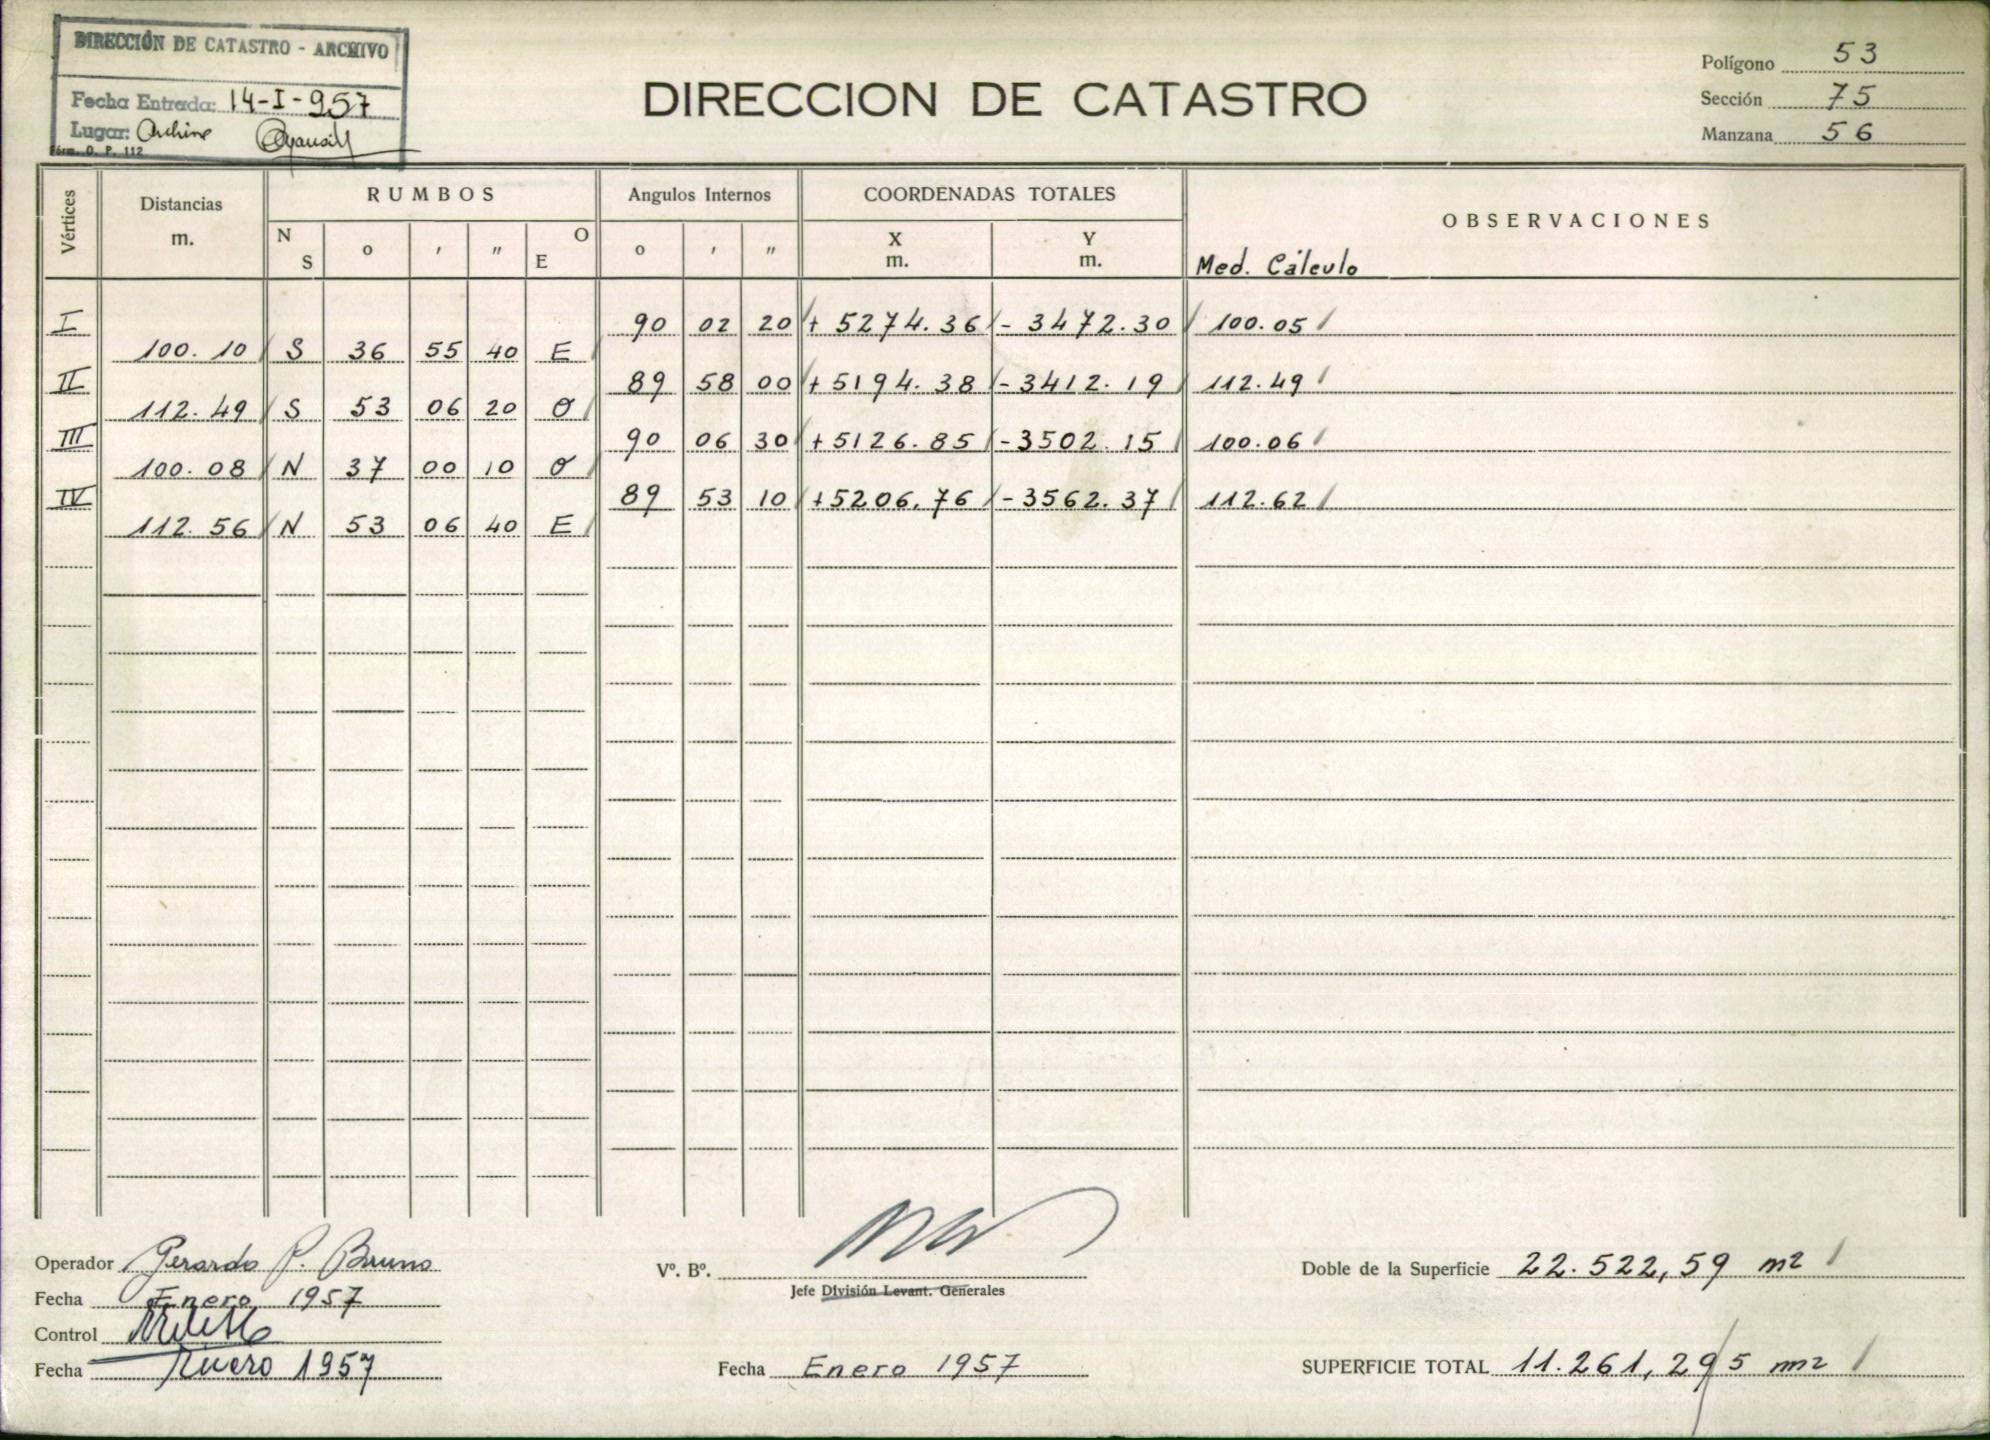 DIRECCIÓN DE CATASTRO - ARCHIVO
Fecha Entrada: 14-I-957
Lugar:
Fórm. O. P. 112
DIRECCION DE CATASTRO
Polígono 53
Sección 75
Manzana 56
Vértices
Distancias
m.
RUMBOS
N S ° ′ ″ O E
Angulos Internos
° ′ ″
COORDENADAS TOTALES
X
m.
Y
m.
OBSERVACIONES
Med. Cálculo
I 90 02 20 + 5274.36 - 3472.30 100.05
100.10 S 36 55 40 E
II 89 58 00 + 5194.38 - 3412.19 112.49
112.49 S 53 06 20 O
III 90 06 30 + 5126.85 - 3502.15 100.06
100.08 N 37 00 10 O
IV 89 53 10 + 5206.76 - 3562.37 112.62
112.56 N 53 06 40 E
Operador Gerardo P. Bruno
Fecha Enero 1957
Control
Fecha Enero 1957
Vº. Bº.
Jefe División Levant. Generales
Fecha Enero 1957
Doble de la Superficie 22.522,59 m2
SUPERFICIE TOTAL 11.261,295 m2